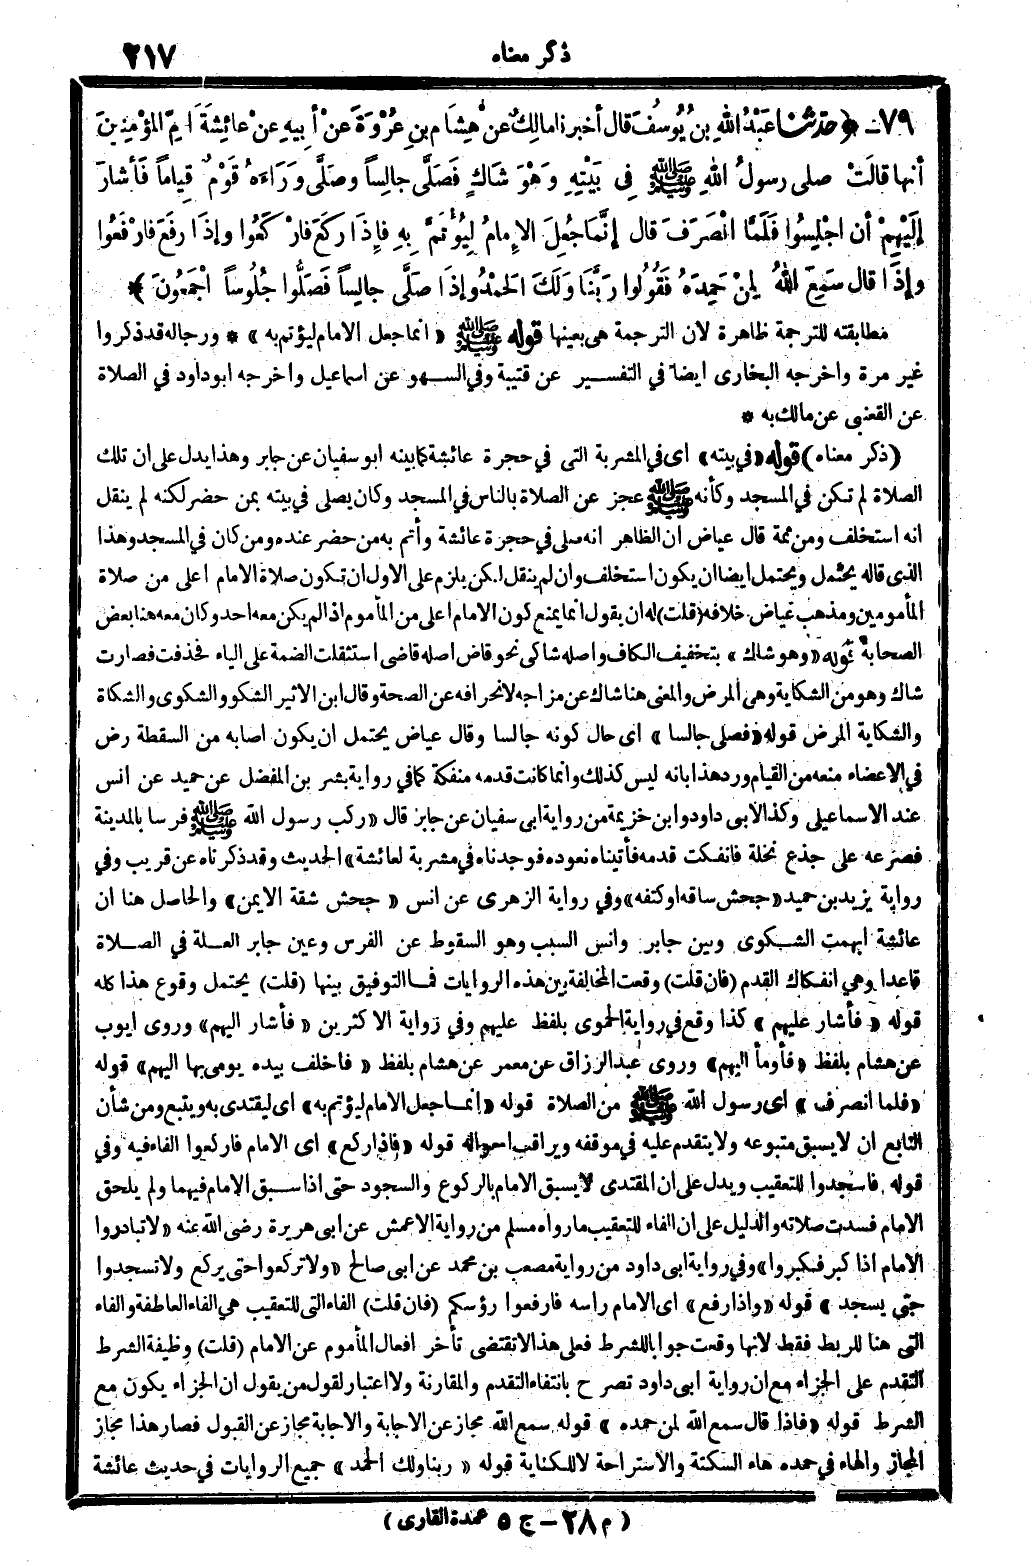 ذكر معناه ٢١٧
٧٩ - ﴿حدثنا عَبْدُ اللهِ بنُ يُوسُفَ قال أخبرنا مالِكٌ عنْ هِشامِ بنِ عُرْوَةَ عنْ أبِيهِ عنْ عائِشَةَ أُمِّ المُؤْمِنِينَ
أنها قالَتْ صلى رسولُ اللهِ ﷺ فِي بَيْتِهِ وَهْوَ شَاكٍ فَصَلَّى جالِساً وصَلَّى وَرَاءَهُ قَوْمٌ قِياماً فَأشارَ
إلَيْهِمْ أن اجْلِسُوا فَلَمَّا انْصَرَفَ قال إنَّما جُعِلَ الإِمامُ لِيُؤْتَمَّ بِهِ فإِذَا ركَعَ فارْكَعُوا وإذَا رفَعَ فارْفَعُوا
وإذَا قال سَمِعَ اللهُ لِمَنْ حَمِدَهُ فَقُولُوا رَبَّنَا وَلَكَ الحَمْدُ وإذَا صَلَّى جالِساً فَصَلُّوا جُلُوساً أجْمَعُونَ﴾*
مطابقته للترجمة ظاهرة لان الترجمة هى بعينها قوله ﷺ «انما جعل الامام ليؤتم به» * ورجاله قد ذكروا
غير مرة واخرجه البخارى ايضا في التفسير عن قتيبة وفي السهو عن اسماعيل واخرجه ابو داود في الصلاة
عن القعنبى عن مالك به *
(ذكر معناه) قوله «في بيته» اى في المشربة التى في حجرة عائشة كما بينه ابو سفيان عن جابر وهذا يدل على ان تلك
الصلاة لم تكن في المسجد وكأنه ﷺ عجز عن الصلاة بالناس في المسجد وكان يصلى في بيته بمن حضر لكنه لم ينقل
انه استخلف ومن ثمة قال عياض ان الظاهر انه صلى في حجرة عائشة وأتم به من حضر عنده ومن كان في المسجد وهذا
الذى قاله يحتمل ويحتمل ايضا ان يكون استخلف وان لم ينقل لكن يلزم على الاول ان تكون صلاة الامام اعلى من صلاة
المأمومين ومذهب عياض خلافه (قلت) له ان يقول انما يمنع كون الامام اعلى من المأموم اذا لم يكن معه احد وكان معه هنا بعض
الصحابة قوله «وهو شاك» بتخفيف الكاف واصله شاكى نحو قاض اصله قاضى استثقلت الضمة على الياء فحذفت فصارت
شاك وهو من الشكاية وهى المرض والمعنى هنا شاك عن مزاجه لانحرافه عن الصحة وقال ابن الاثير الشكو والشكوى والشكاة
والشكاية المرض قوله «فصلى جالسا» اى حال كونه جالسا وقال عياض يحتمل ان يكون اصابه من السقطة رض
في الاعضاء منعه من القيام ورد هذا بانه ليس كذلك وانما كانت قدمه منفكة كما في رواية بشر بن المفضل عن حميد عن انس
عند الاسماعيلى وكذا لابى داود وابن خزيمة من رواية ابى سفيان عن جابر قال «ركب رسول الله ﷺ فرسا بالمدينة
فصرعه على جذع نخلة فانفكت قدمه فأتيناه نعوده فوجدناه في مشربة لعائشة» الحديث وقد ذكرناه عن قريب وفي
رواية يزيد بن حميد «جحش ساقه او كتفه» وفي رواية الزهرى عن انس «جحش شقة الايمن» والحاصل هنا ان
عائشة ابهمت الشكوى وبين جابر وانس السبب وهو السقوط عن الفرس وعين جابر العلة في الصلاة
قاعدا وهي انفكاك القدم (فان قلت) وقعت المخالفة بين هذه الروايات فما التوفيق بينها (قلت) يحتمل وقوع هذا كله
قوله «فأشار عليهم» كذا وقع في رواية الحموى بلفظ عليهم وفي رواية الاكثرين «فأشار اليهم» وروى ايوب
عن هشام بلفظ «فأومأ اليهم» وروى عبد الرزاق عن معمر عن هشام بلفظ «فاخلف بيده يومى بها اليهم» قوله
«فلما انصرف» اى رسول الله ﷺ من الصلاة قوله «انما جعل الامام ليؤتم به» اى ليقتدى به ويتبع ومن شأن
التابع ان لا يسبق متبوعه ولا يتقدم عليه في موقفه ويراقب احواله قوله «فاذا ركع» اى الامام فاركعوا الفاء فيه وفي
قوله فاسجدوا للتعقيب ويدل على ان المقتدى لا يسبق الامام بالركوع والسجود حتى اذا سبق الامام فيهما ولم يلحق
الامام فسدت صلاته والدليل على ان الفاء للتعقيب ما رواه مسلم من رواية الاعمش عن ابى هريرة رضى الله عنه «لا تبادروا
الامام اذا كبر فكبروا» وفي رواية ابى داود من رواية مصعب بن محمد عن ابى صالح «ولا تركعوا حتى يركع ولا تسجدوا
حتى يسجد» قوله «واذا رفع» اى الامام رأسه فارفعوا رؤسكم (فان قلت) الفاء التى للتعقيب هي الفاء العاطفة والفاء
التى هنا للربط فقط لانها وقعت جوابا للشرط فعلى هذا لا تقتضى تأخر افعال المأموم عن الامام (قلت) وظيفة الشرط
التقدم على الجزاء مع ان رواية ابى داود تصرح بانتفاء التقدم والمقارنة ولا اعتبار لقول من يقول ان الجزاء يكون مع
الشرط قوله «فاذا قال سمع الله لمن حمده» قوله سمع الله مجاز عن الاجابة والاجابة مجاز عن القبول فصار هذا مجاز
المجاز والهاء في حمده هاء السكتة والاستراحة لا للكناية قوله «ربنا ولك الحمد» جميع الروايات في حديث عائشة
(م ٢٨ - ج ٥ عمدة القارى)